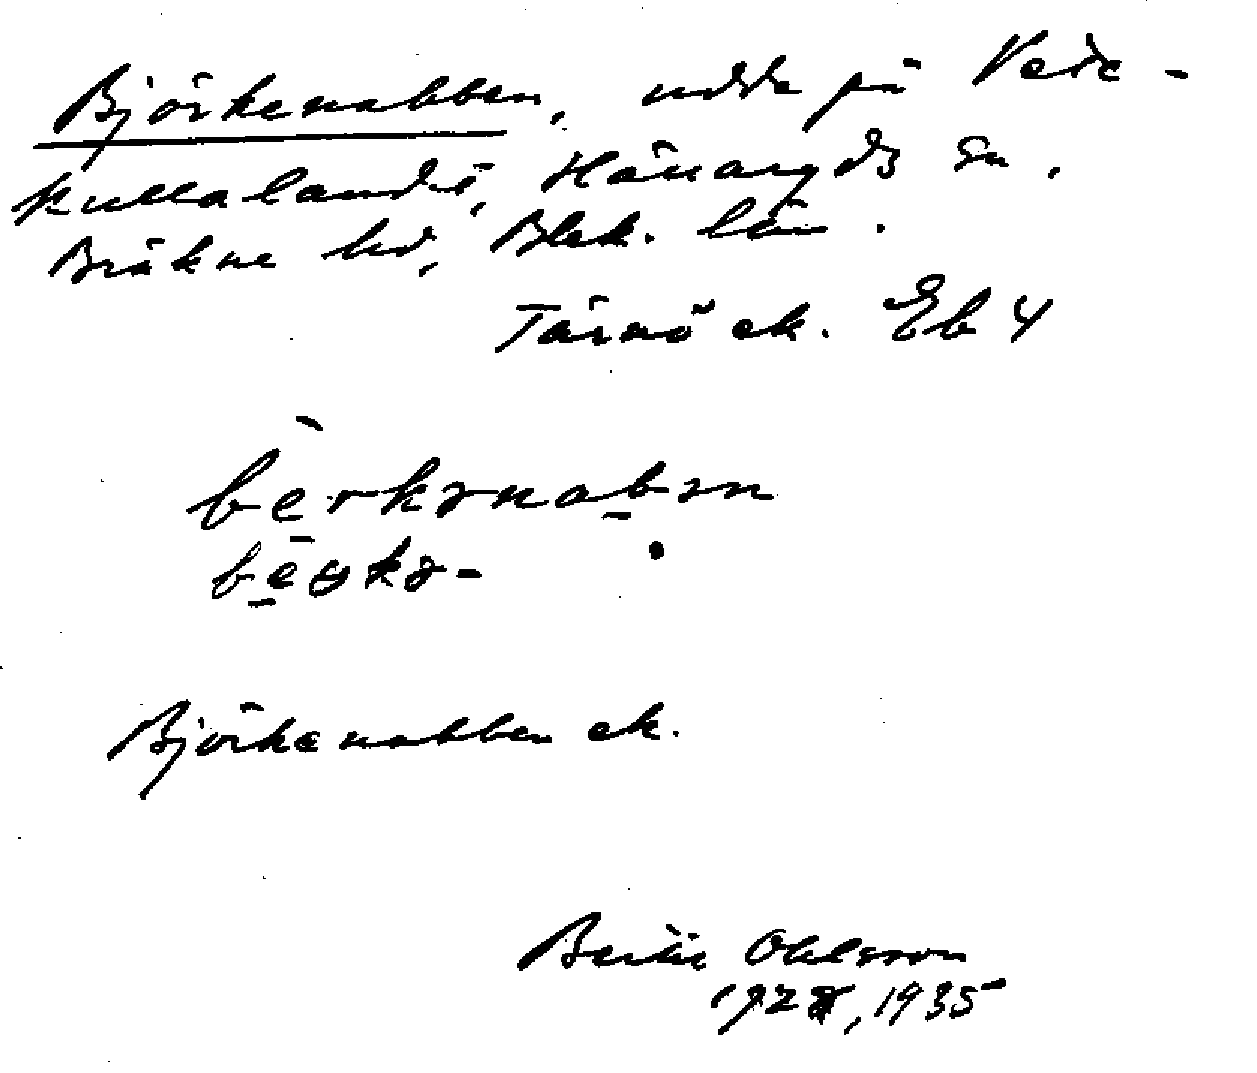 Björkenabben, udde på Veke-
kullalandet, Hällaryds sn.
Bräkne hd, Blek. län.
Tärnö ek. Eb 4
bèrkənabən
bèᴚkə-
Björkenabben ek.
Bertil Ohlsson
1928, 1935